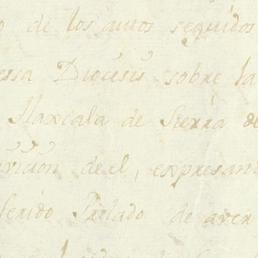 o de los autos seguidos
essa Diocesis sobre la
Tlaxcala de Sierra de
vicion de el, expresan
ferido Prelado de aver